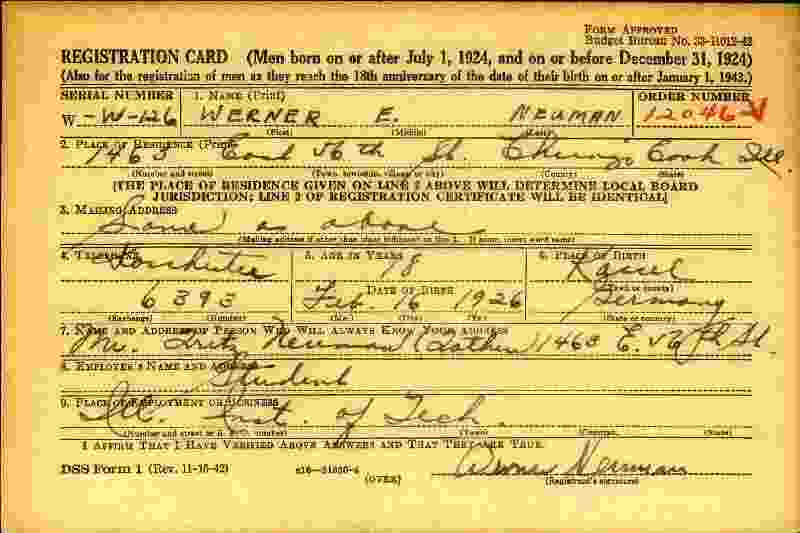 FORM APPROVED
Budget Bureau No. 33-R012-42
REGISTRATION CARD (Men born on or after July 1, 1924, and on or before December 31, 1924)
(Also for the registration of men as they reach the 18th anniversary of the date of their birth on or after January 1, 1943.)
SERIAL NUMBER 1. NAME (Print) ORDER NUMBER
W-W-126 WERNER E. NEUMAN 12046
(First) (Middle) (Last)
2. PLACE OF RESIDENCE (Print)
1463 East 56th St. Chicago Cook Ill.
(Number and street) (Town, township, village or city) (County) (State)
[THE PLACE OF RESIDENCE GIVEN ON LINE 2 ABOVE WILL DETERMINE LOCAL BOARD
JURISDICTION; LINE 2 OF REGISTRATION CERTIFICATE WILL BE IDENTICAL]
3. MAILING ADDRESS
Same as above
(Mailing address if other than place indicated on line 2. If same, insert word same)
4. TELEPHONE 5. AGE IN YEARS 6. PLACE OF BIRTH
18 Kassel
DATE OF BIRTH (Town or county)
6393 Feb. 16 1926 Germany
(Exchange) (Number) (Mo.) (Day) (Yr.) (State or country)
7. NAME AND ADDRESS OF PERSON WHO WILL ALWAYS KNOW YOUR ADDRESS
Mr. Fritz Neuman (Father) 1463 E. 56th St.
8. EMPLOYER'S NAME AND ADDRESS
Student
9. PLACE OF EMPLOYMENT OR BUSINESS
Ill. Inst. of Tech.
(Number and street or R. F. D. number) (Town) (County) (State)
I AFFIRM THAT I HAVE VERIFIED ABOVE ANSWERS AND THAT THEY ARE TRUE.
DSS Form 1 (Rev. 11-16-42) (OVER) Werner Neuman
(Registrant's signature)